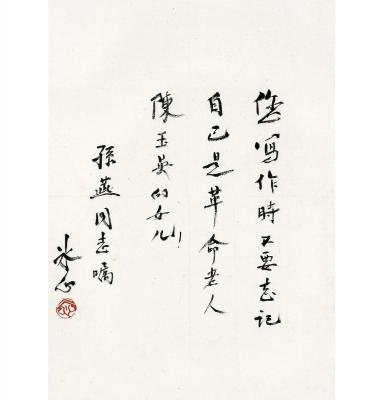 您寫作時不要忘記
自己是革命老人
陳玉英的女儿!
孫燕同志囑
冰心